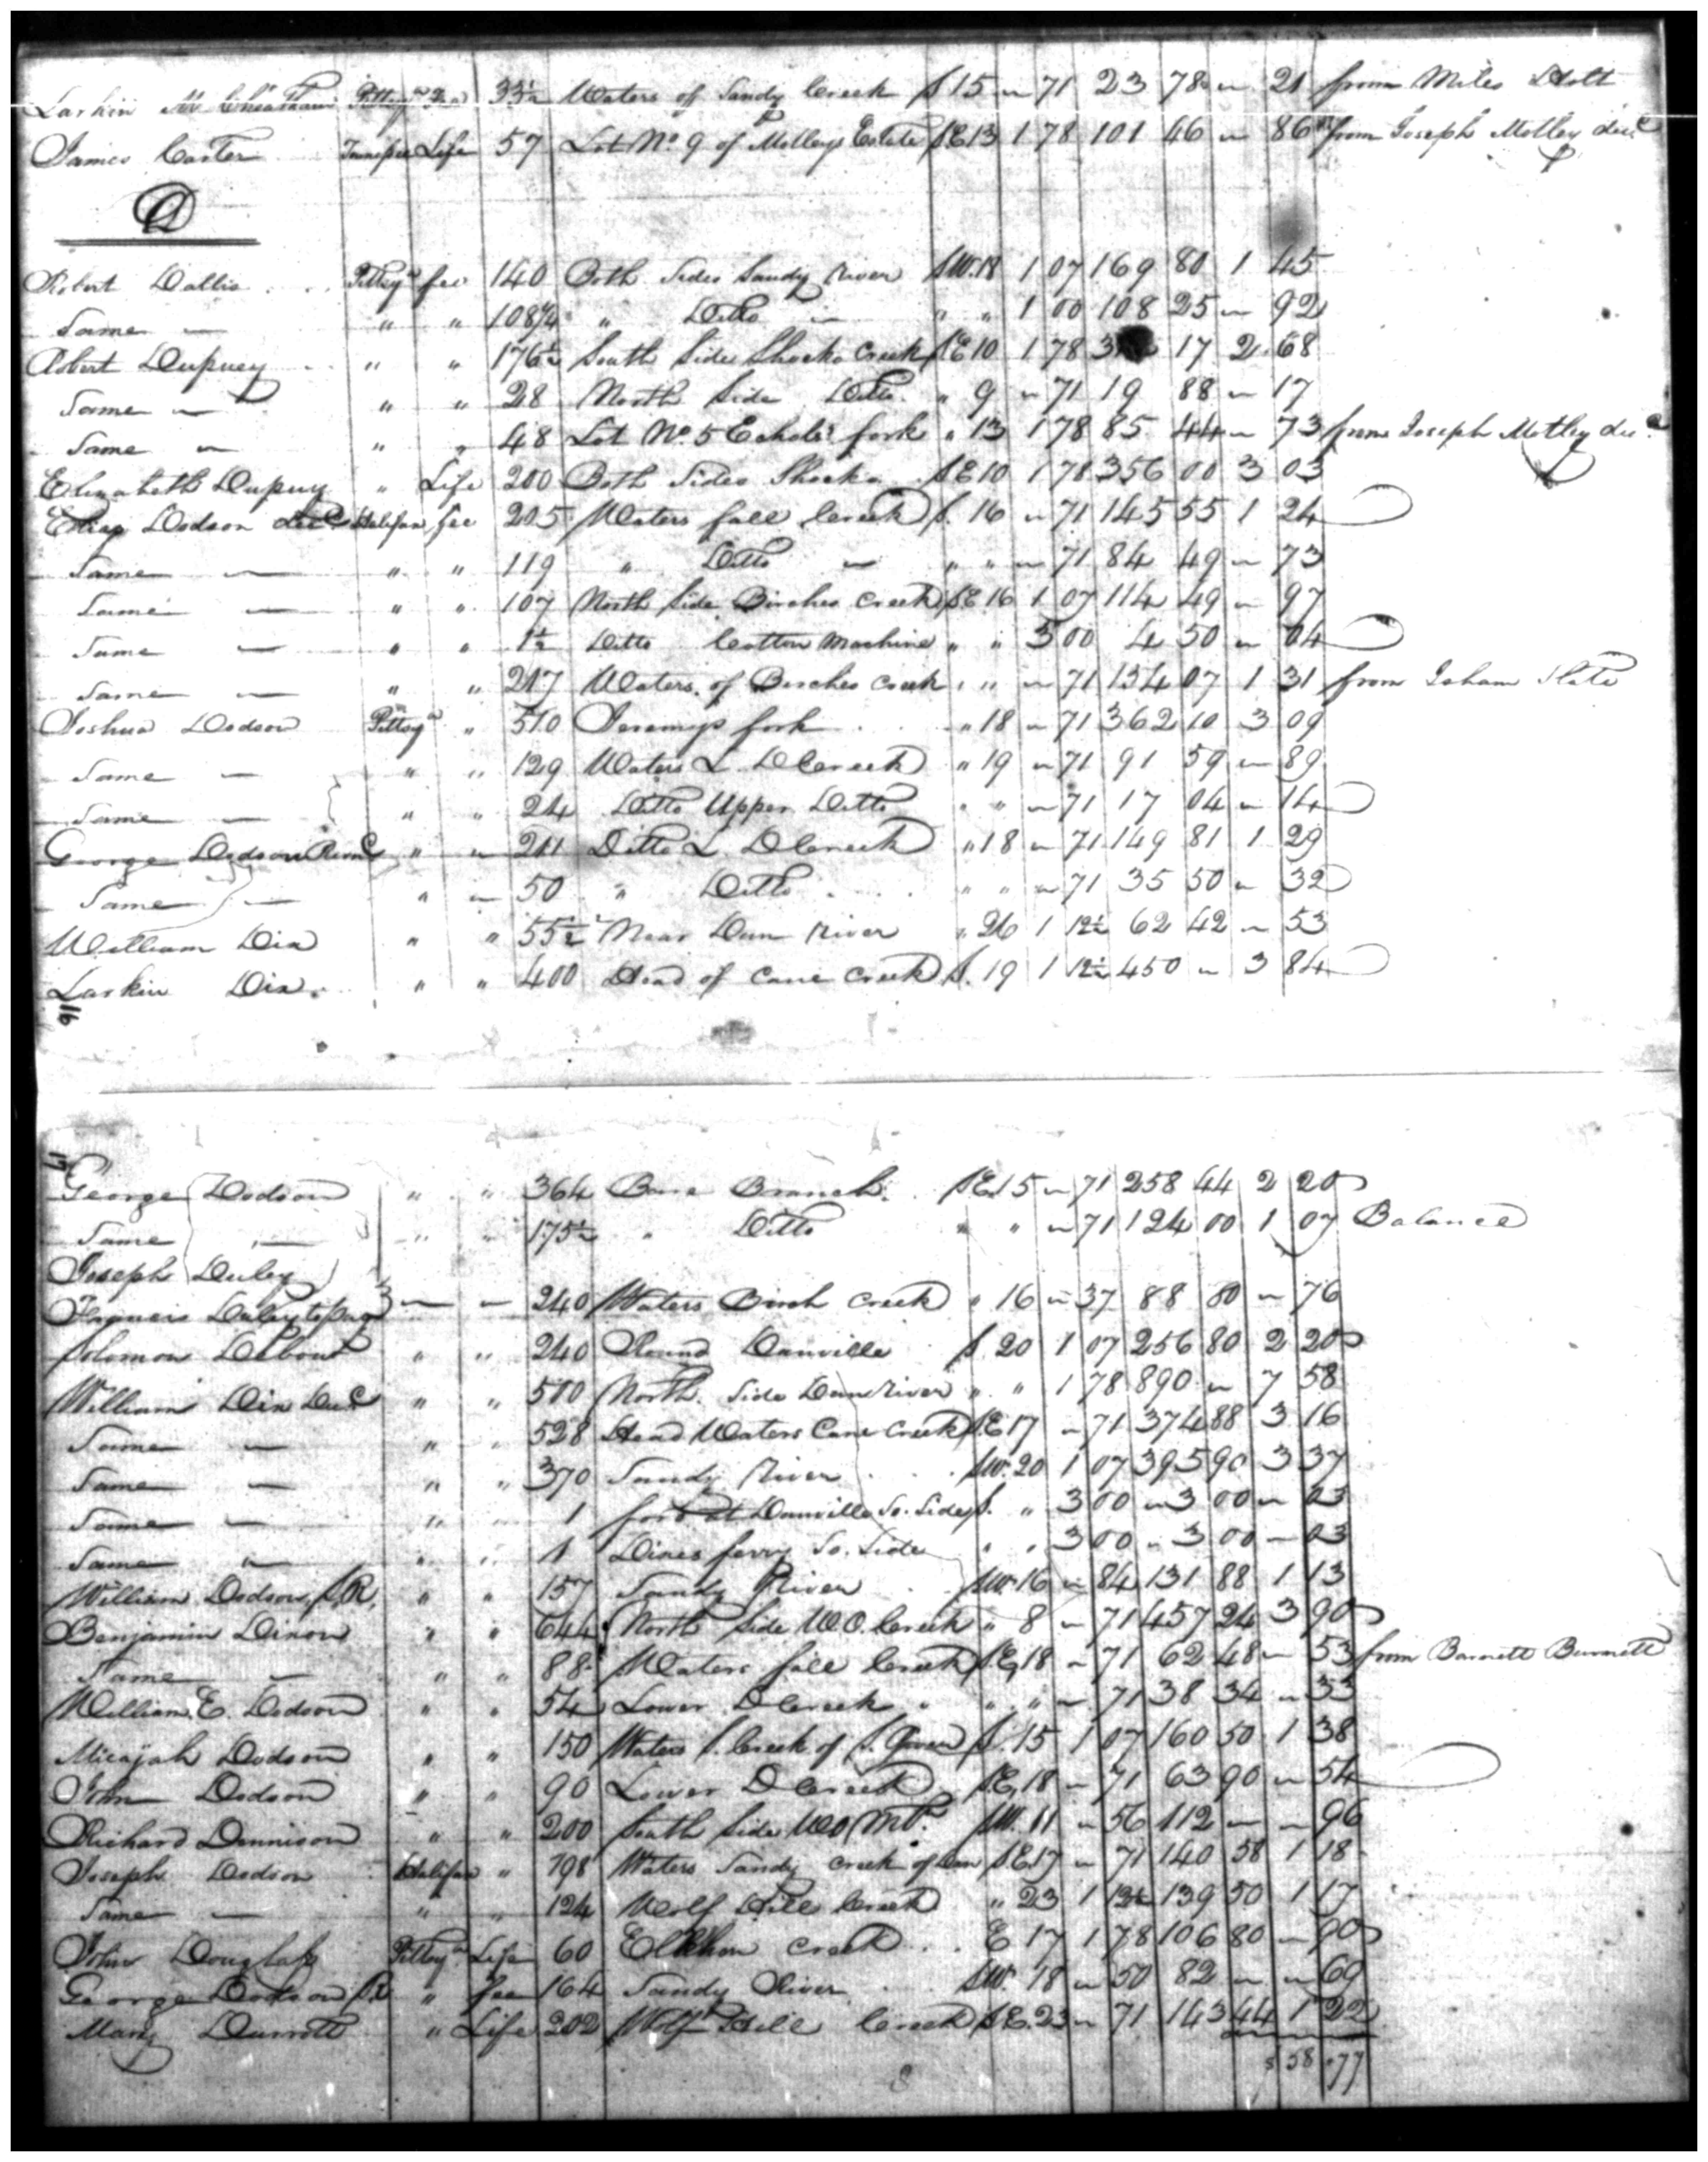 Larkin Mc Cheatham Pittsy a fee 33½ Waters of Sandy Creek S 15 " 71 23 78 " 21 from Miles Holt
James Carter Tennessee Life 57 Lot No 9 of Motleys Estate SE 13 1 78 101 46 " 86 from Joseph Motley decd
D
Robert Dallis Pittsy a fee 140 Both Sides Sandy River SW. 18 1 07 169 80 1 45
Same " " " 108¼ " Ditto " " " 1 00 108 25 " 92
Robert Dupuey " " 176½ South Side Shocko Creek SE 10 1 78 3 17 2 68
Same " " " 28 North Side Ditto " 9 " 71 19 88 " 17
Same " " " 48 Lot No. 5 Echols fork " 13 1 78 85 44 " 73 from Joseph Motley decd
Elizabeth Dupuy " Life 200 Both Sides Shocko SE 10 1 78 356 00 3 03
Elias Dodson Decd Halifax fee 205 Waters fall Creek S. 16 " 71 145 55 1 24
Same " " 119 " Ditto " " " " 71 84 49 " 73
Same " " 107 North Side Birches Creek SE 16 1 07 114 49 " 97
Same " " 1½ Ditto Cotton Machine " " 3 00 4 50 " 04
Same " " 217 Waters of Birches Creek " " " 71 154 07 1 31 from Isham Slate
Joshua Dodson Pittsy a " 510 Jeremys fork " 18 " 71 362 10 3 09
Same " " 129 Waters L. D Creek " 19 " 71 91 59 " 89
Same " " 24 Ditto Upper Ditto " " " 71 17 04 " 14
George Dodson " " 211 Ditto L. D Creek " 18 " 71 149 81 1 29
Same " " 50 " Ditto " " " 71 35 50 " 32
William Dix " " 55½ Near Dan River " 26 1 12½ 62 42 " 53
Larkin Dix " " 400 Head of Cane Creek S. 19 1 12½ 450 " 3 84
16
17
George Dodson " " 364 Bare Branch SE 15 " 71 258 44 2 20
Same " " 175½ " Ditto " " " 71 124 00 1 07 Balance
Joseph Duley
Francis Duley to pay " " 240 Waters Birch Creek " 16 " 37 88 80 " 76
Solomon Debow " " 240 Round Danville S. 20 1 07 256 80 2 20
William Dix Decd " " 500 North Side Dan River " " 1 78 890 " 7 58
Same " " 528 Head Waters Cane Creek SE 17 " 71 374 88 3 16
Same " " 370 Sandy River SW. 20 1 07 395 90 3 37
Same " " 1 at Danville So. Side S. " 3 00 " 3 00 " 03
Same " " 1 Dixes ferry So. Side " " 3 00 " 3 00 " 03
William Dodson S,R, " " 157 Sandy River SW. 16 " 84 131 88 1 13
Benjamin Dixon " " 644 North Side W.O. Creek " 8 " 71 457 24 3 90
Same " " 88 Waters fall Creek SE, 18 " 71 62 48 " 53 from Barnett Burnett
William. E. Dodson " " 54 Lower D Creek " " " " 71 38 34 " 33
Micajah Dodson " " 150 Waters S. Creek of S. River S. 15 1 07 160 50 1 38
John Dodson " " 90 Lower D Creek SE, 18 " 71 63 90 " 54
Richard Dennison " " 200 South Side W O Mt. SW. 11 " 56 112 " " 96
Joseph Dodson Halifax " 198 Waters Sandy Creek of Dan SE 17 " 71 140 58 1 18
Same " " 124 Wolf Hill Creek " 23 1 12½ 139 50 1 17
John Douglass Pittsy a Life 60 Elkhorn Creek E 17 1 78 106 80 " 90
George Dodson SR " fee 164 Sandy River SW. 18 " 50 82 " " 69
Mary Durrett " Life 202 Wolf Hill Creek SE. 23 " 71 143 44 1 22
$ 58 .77